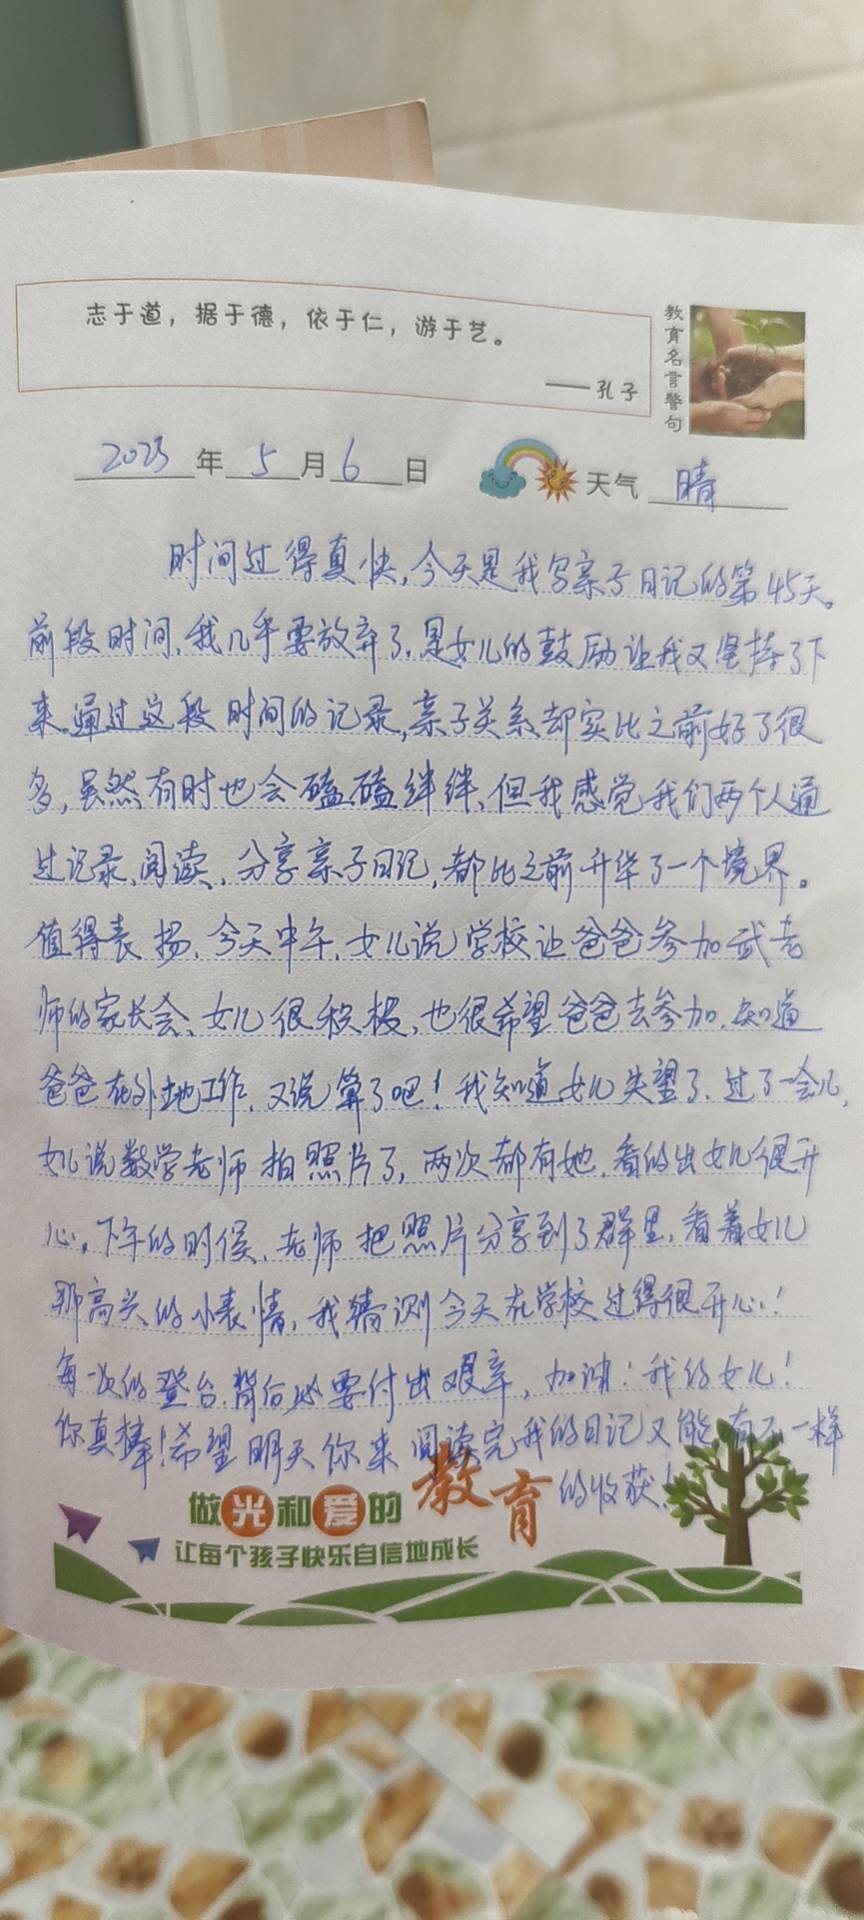 志于道，据于德，依于仁，游于艺。
——孔子
教育名言警句
2023年5月6日 天气 晴
时间过得真快，今天是我写亲子日记的第45天。
前段时间，我几乎要放弃了，是女儿的鼓励让我又坚持了下
来。通过这段时间的记录，亲子关系却实比之前好了很
多，虽然有时也会磕磕绊绊、但我感觉我们两个人通
过记录、阅读、分享亲子日记，都比之前升华了一个境界。
值得表扬，今天中午，女儿说学校让爸爸参加武老
师的家长会、女儿很积极，也很希望爸爸去参加，知道
爸爸在外地工作，又说算了吧！我知道女儿失望了，过了一会儿，
女儿说数学老师拍照片了，两次都有她，看的出女儿很开
心。下午的时侯，老师把照片分享到了群里，看着女儿
那高兴的小表情，我猜测今天在学校过得很开心！
每一次的登台背后必要付出艰辛，加油！我的女儿！
你真棒！希望明天你来阅读完我的日记又能有不一样
的收获！
做光和爱的教育
让每个孩子快乐自信地成长